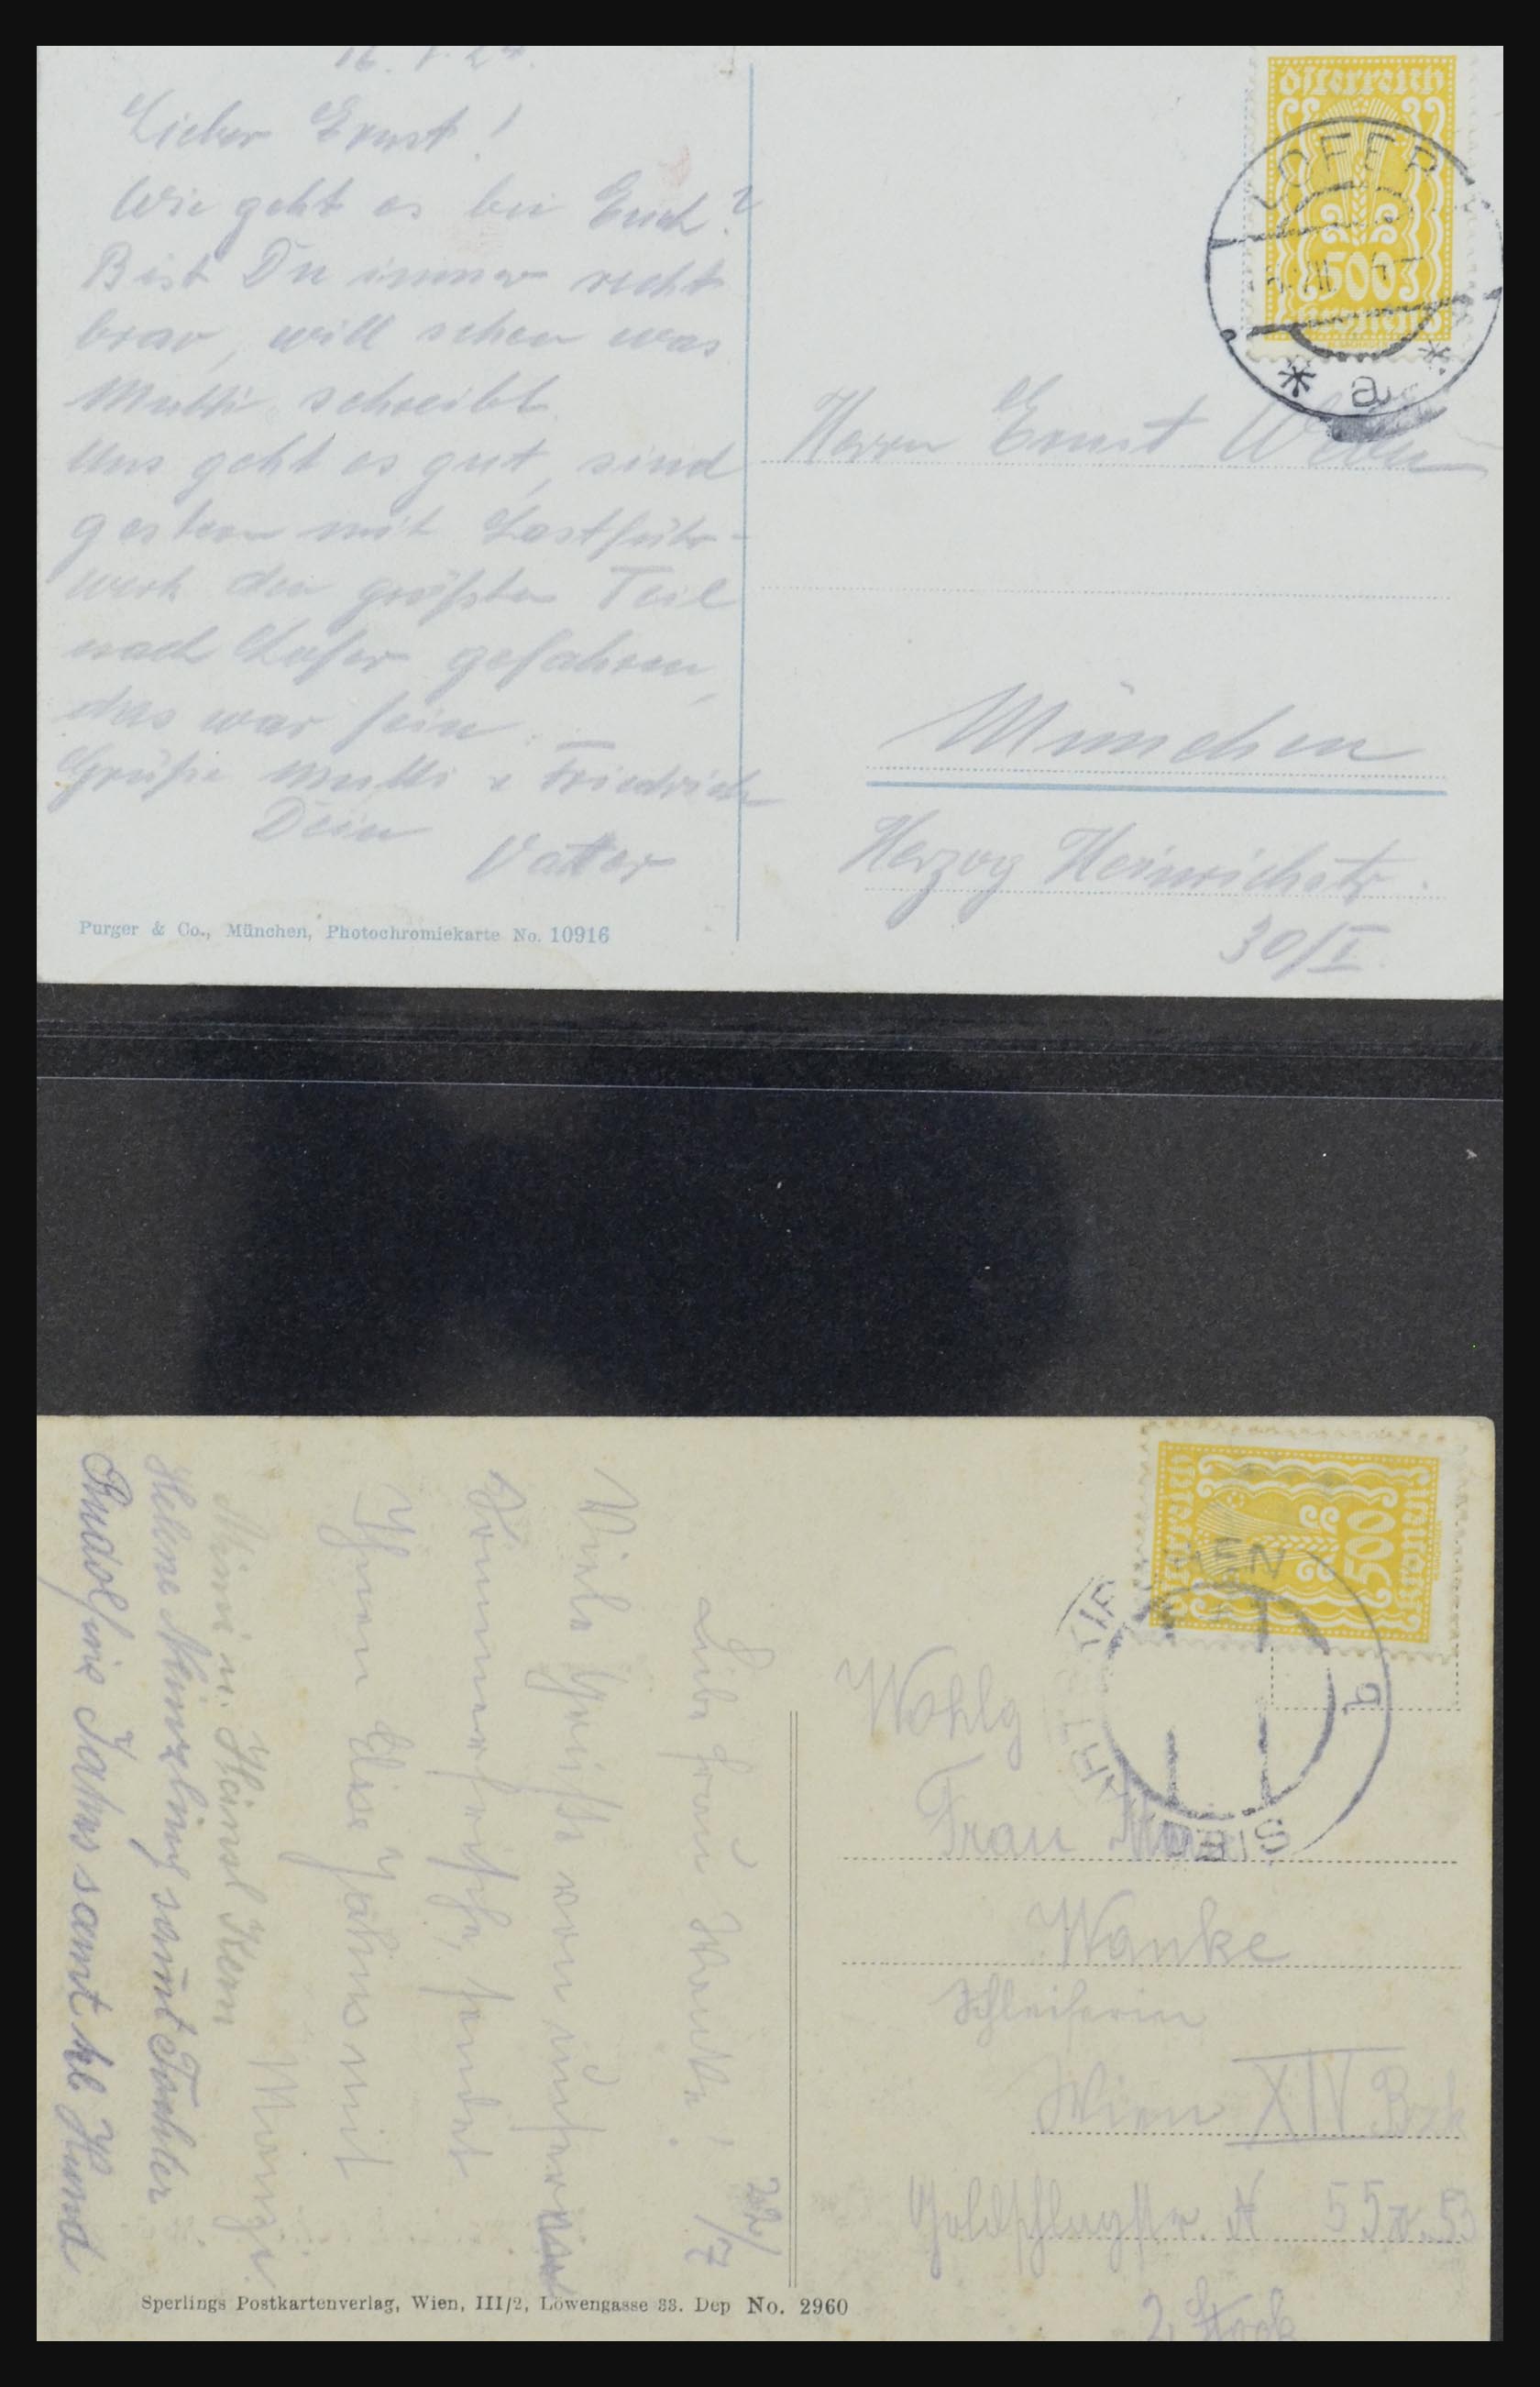 Lieber Ernst!
Wie geht es bei Euch?
Bist Du immer recht
brav, will sehen was
Mutti schreibt.
Uns geht es gut, sind
gestern mit Lastfuhr-
werk den größten Teil
nach Lofer gefahren,
das war fein.
Grüße Mutti & Friedrich
Dein
Vater
Purger & Co., München, Photochromiekarte No. 10916
Österreich
500
Kronen
LOFER
* a *
Herrn Ernst Weber
München
Herzog Heinrichstr.
30/I
22/7
Liebe Frau Wanke!
Viele Grüße von unserer
Sommerfrische, sendet
Ihnen Elise Jahns mit
Mimi u. Heinzl Kern
Helene Meinzling samt Tochter
Rudolfine Jahns samt kl Hund
Sperlings Postkartenverlag, Wien, III/2, Löwengasse 33. Dep No. 2960
Österreich
500
Kronen
Wohlg
Frau Marie
Wanke
Schleiferin
Wien XIV Bzk
Goldschlagstr. N 55 53
2. Stock